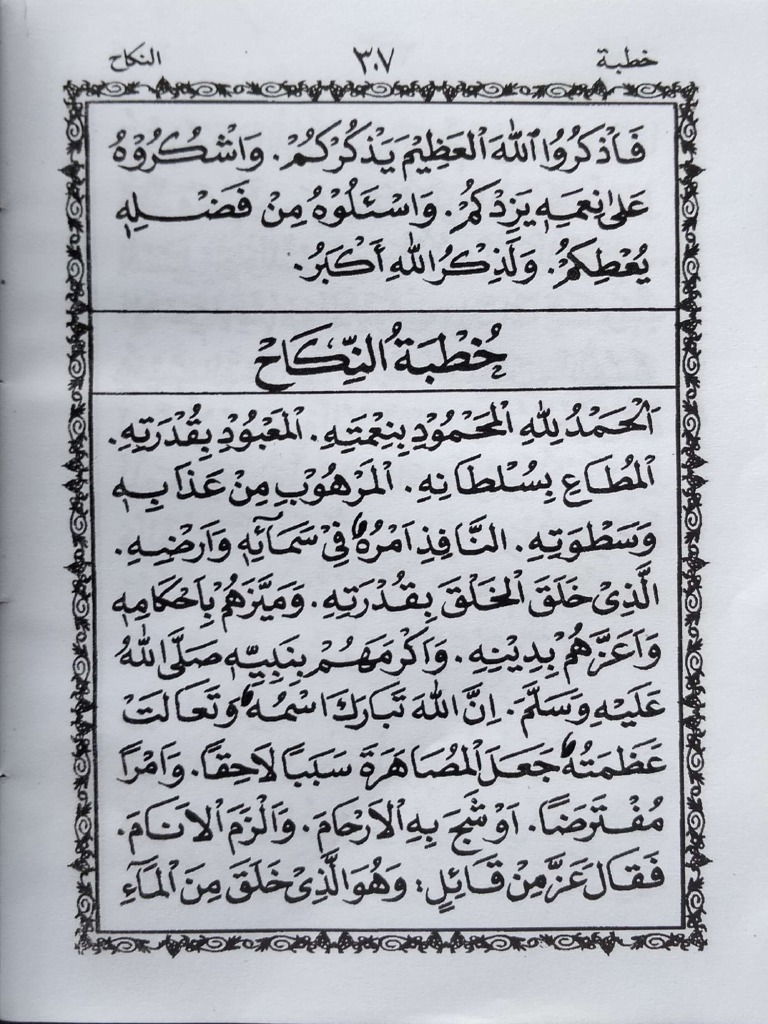 خطبة ٣٠٧ النكاح
فَاذْكُرُوا اللهَ الْعَظِيْمَ يَذْكُرْكُمْ. وَاشْكُرُوْهُ
عَلىٰ نِعَمِهٖ يَزِدْكُمْ. وَاسْئَلُوْهُ مِنْ فَضْلِهٖ
يُعْطِكُمْ. وَلَذِكْرُ اللهِ أَكْبَرُ.
خُطْبَةُ النِّكَاحْ
اَلْحَمْدُ لِلّٰهِ الْمَحْمُوْدِ بِنِعْمَتِهِ. الْمَعْبُوْدِ بِقُدْرَتِهِ.
الْمُطَاعِ بِسُلْطَانِهِ. الْمَرْهُوْبِ مِنْ عَذَابِهٖ
وَسَطْوَتِهِ. النَّافِذِ اَمْرُهٗ فِيْ سَمَآئِهٖ وَاَرْضِهِ.
الَّذِىْ خَلَقَ الْخَلْقَ بِقُدْرَتِهِ. وَمَيَّزَهُمْ بِاَحْكَامِهٖ
وَاَعَزَّهُمْ بِدِيْنِهِ. وَاَكْرَمَهُمْ بِنَبِيِّهٖ صَلَّى اللهُ
عَلَيْهِ وَسَلَّمَ. اِنَّ اللهَ تَبَارَكَ اسْمُهٗ وَتَعَالَتْ
عَظَمَتُهٗ جَعَلَ الْمُصَاهَرَةَ سَبَبًا لَاحِقًا. وَاَمْرًا
مُفْتَرَضًا. اَوْشَجَ بِهِ الْاَرْحَامَ. وَاَلْزَمَ الْاَنَامَ.
فَقَالَ عَزَّ مِنْ قَائِلٍ: وَهُوَ الَّذِىْ خَلَقَ مِنَ الْمَآءِ